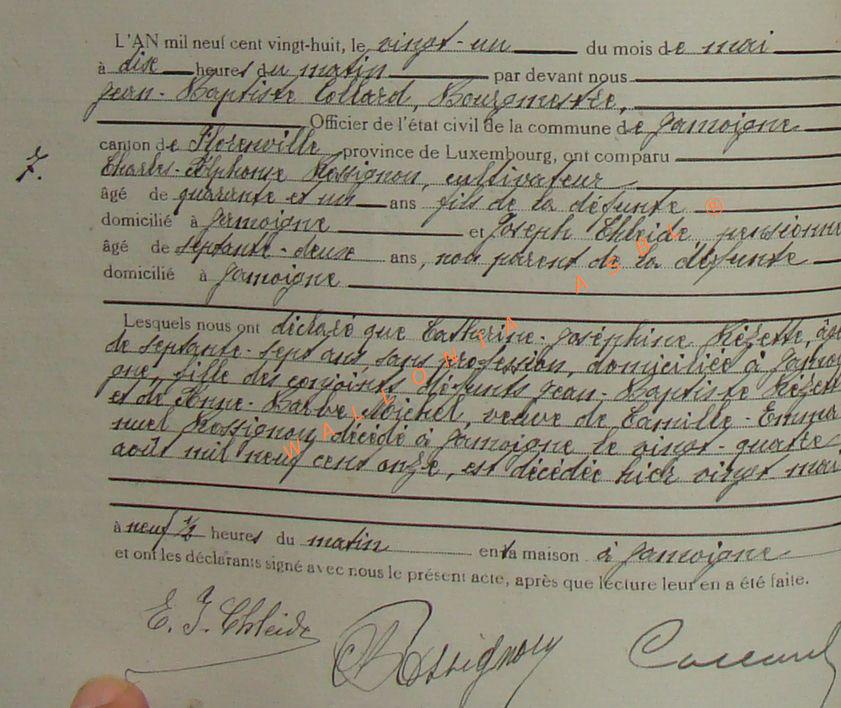 L'AN mil neuf cent vingt-huit, le vingt-un du mois de mai
à dix heures du matin par devant nous
Jean-Baptiste Collard, Bourgmestre,
Officier de l'état civil de la commune de Jamoigne
canton de Florenville province de Luxembourg, ont comparu
7. Charles-Alphonse Rossignon, cultivateur
âgé de quarante et un ans fils de la défunte
domicilié à Jamoigne et Joseph Chleide, pensionné
âgé de septante-deux ans, non parent de la défunte
domicilié à Jamoigne
Lesquels nous ont déclaré que Catherine-Joséphine Rézette, âgée
de septante-sept ans, sans profession, domiciliée à Jamoi-
gne, fille des conjoints défunts Jean-Baptiste Rézette
et de Anne-Barbe Michel, veuve de Camille-Emma-
nuel Rossignon décédé à Jamoigne le vingt-quatre
août mil neuf cent onze, est décédée hier vingt mai
à neuf 1/2 heures du matin en sa maison à Jamoigne
et ont les déclarants signé avec nous le présent acte, après que lecture leur en a été faite.
E. J. Chleide Rossignon Collard
WALLONIA ASBL ©